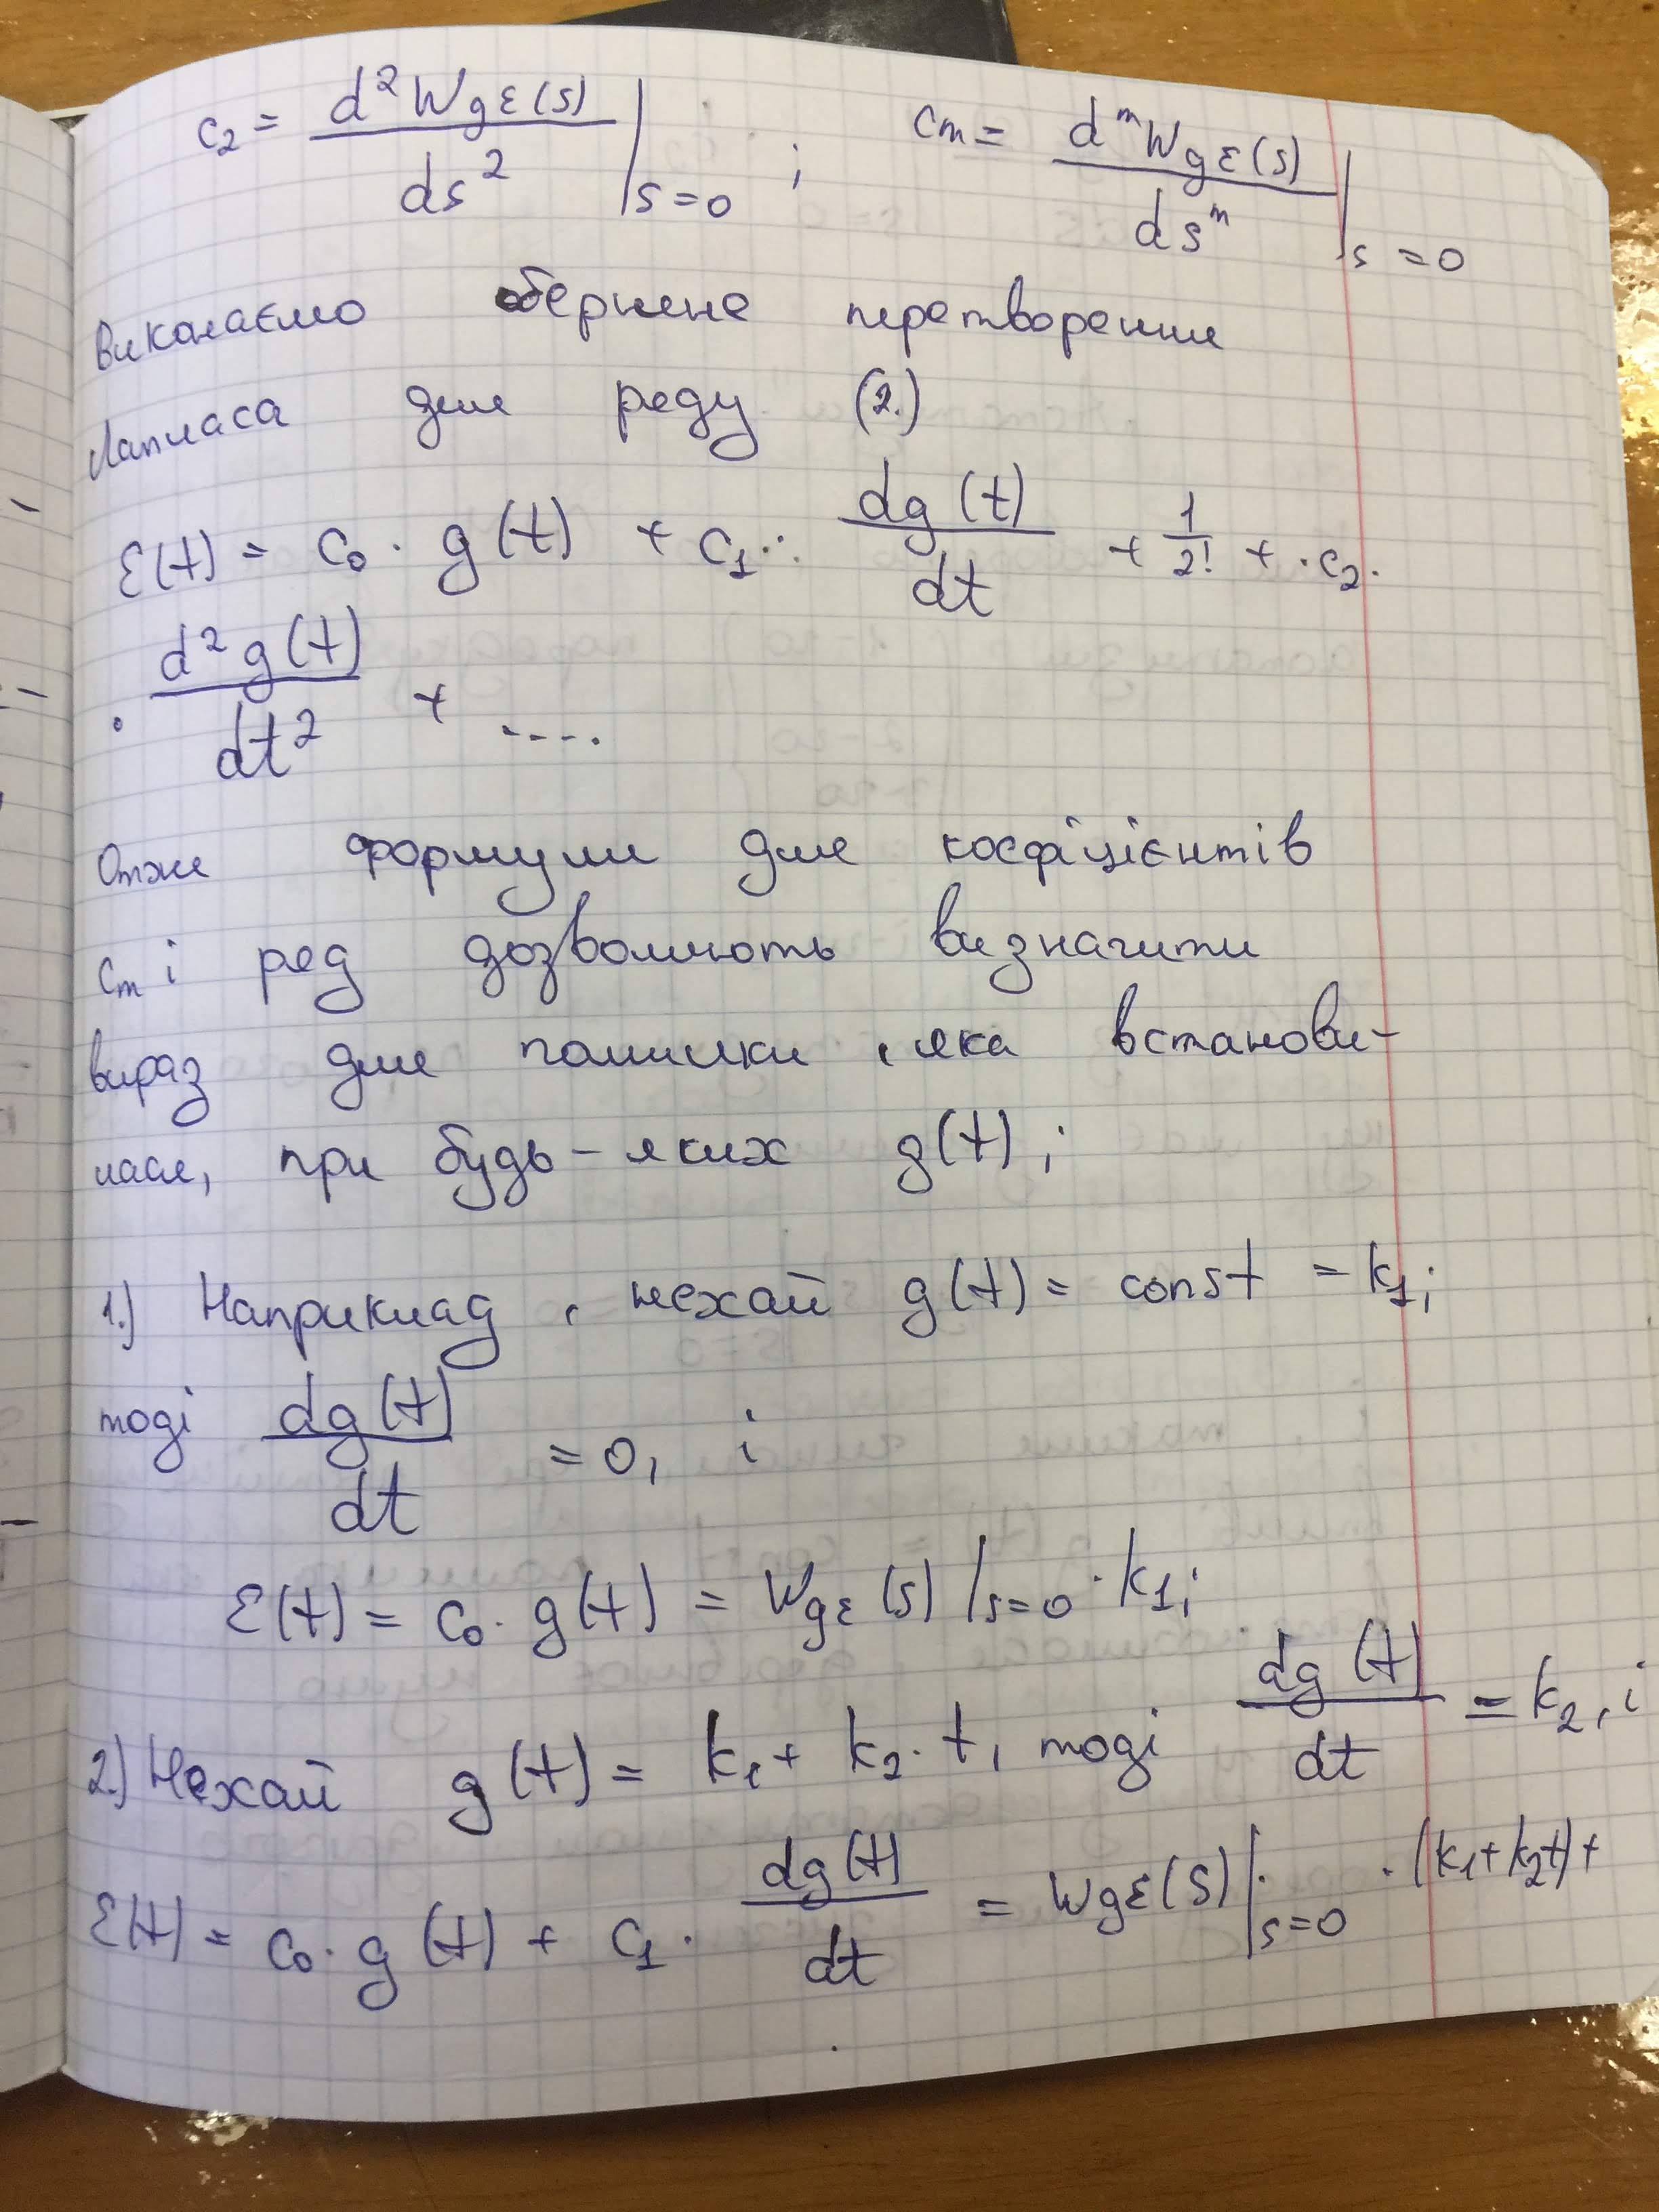 c₂ = d²Wgε(s)/ds² |s=0 ; cm = dᵐWgε(s)/dsᵐ |s=0
Виконаємо обернене перетворення
Лапласа для ряду (2.)
ε(t) = c₀ · g(t) + c₁ · dg(t)/dt + 1/2! + · c₂ ·
· d²g(t)/dt² + ....
Отже формули для коефіцієнтів
cm і ряд дозволяють визначити
вираз для помилки, яка встанови-
лася, при будь-яких g(t);
1.) Наприклад, нехай g(t) = const = k₁;
тоді dg(t)/dt = 0, і
ε(t) = c₀ · g(t) = Wgε(s) |s=0 · k₁;
2.) Нехай g(t) = k₁ + k₂ · t, тоді dg(t)/dt = k₂, і
ε(t) = c₀ · g(t) + c₁ · dg(t)/dt = Wgε(s) |s=0 · (k₁ + k₂t) +